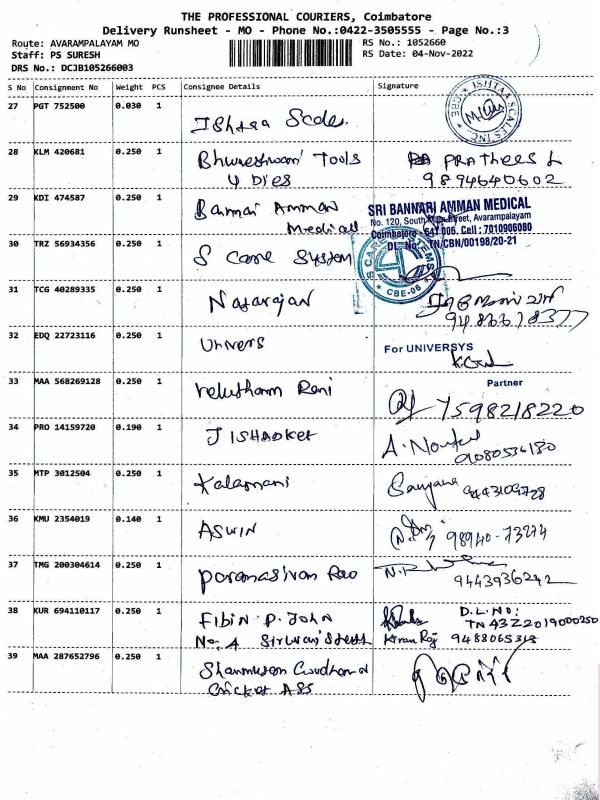 THE PROFESSIONAL COURIERS, Coimbatore
Delivery Runsheet - MO - Phone No.:0422-3505555 - Page No.:3
Route: AVARAMPALAYAM MO
Staff: PS SURESH
DRS No.: DCJB105266003
RS No.: 1052660
RS Date: 04-Nov-2022
S No Consignment No Weight PCS Consignee Details Signature
27 PGT 752500 0.030 1 Ishtaa Scales
ISHTAA SCALES INC. CBE
28 KLM 420681 0.250 1 Bhuvaneshwari Tools PRAthees L
& Dies 9894640602
29 KDI 474587 0.250 1 Bannari Amman
Medical
SRI BANNARI AMMAN MEDICAL
No. 120, South Street, Avarampalayam
Coimbatore - 641 006. Cell : 7010906080
DL. No. TN/CBN/00198/20-21
30 TRZ 56934356 0.250 1 S Care System
S CARE SYSTEMS CBE-06
31 TCG 40289335 0.250 1 Natarajan
32 EDQ 22723116 0.250 1 Univers For UNIVERSYS
Partner
33 MAA 568269128 0.250 1 Velusham Rani 7598218220
34 PRO 14159720 0.190 1 J ISHAQKET A. Noufal
9080536180
35 MTP 3012504 0.250 1 Kalamani Sanjana 9443109728
36 KMU 2354019 0.140 1 ASWIN 98940-73274
37 TMG 200304614 0.250 1 Paramasivan Rao
9443936242
38 KUR 694110117 0.250 1 FIBIN P. JOHN D.L.NO:
TN43Z2019000250
No. 4 Street Kiran Raj 9488065313
39 MAA 287652796 0.250 1 Shanmugam
Cricket ASS